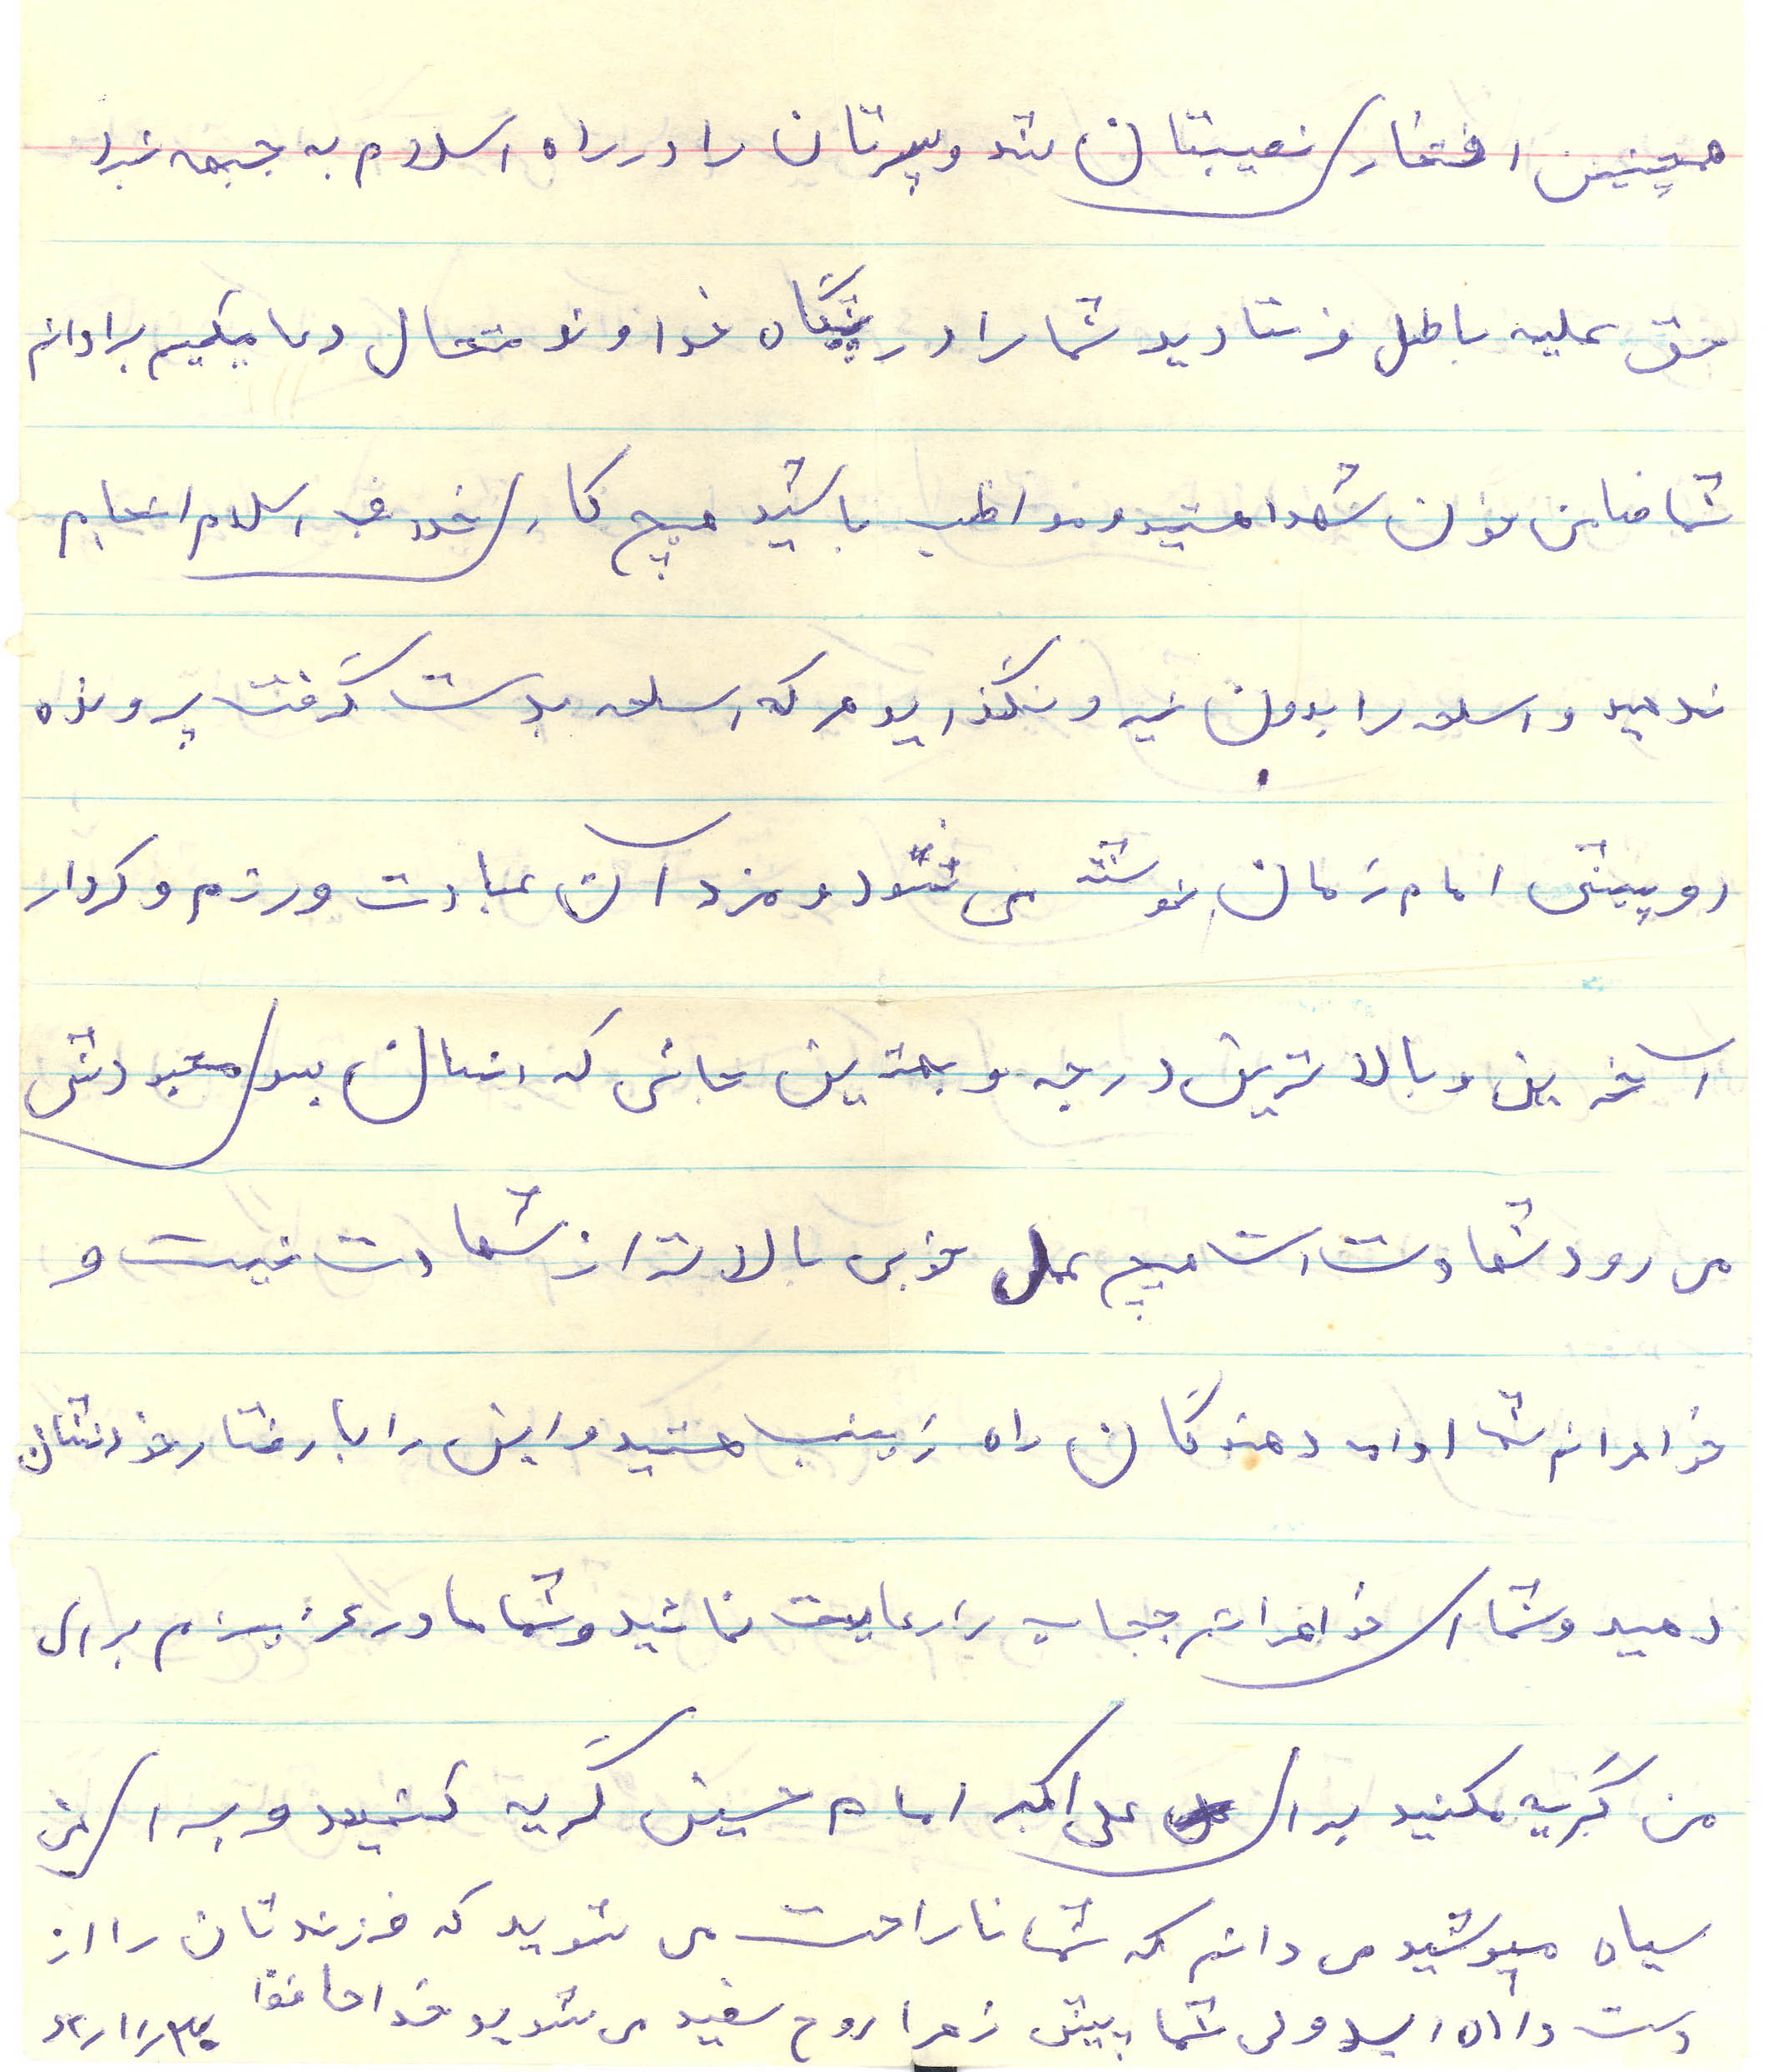 همچنین افتخاری نصیبتان شد و پسرتان را در راه اسلام به جبهه نبرد
حق علیه باطل فرستادید شما را در پیشگاه خداوند متعال دعا میکنیم برادرانم
شما ضامن خون شهدا هستید و مواظب باشید هیچ کاری خلاف اسلام انجام
ندهید و اسلحه را بدون نیه و نگذارید هر که اسلحه بدست گرفت پرونده
او پیش امام زمان نوشته می شود و مزد آن عبادت و رزم و کردار
آخرین و بالاترین درجه و بهترین جائی که انسان بسوی معبودش
می رود شهادت است هیچ عمل خوبی بالاتر از شهادت نیست و
خواهرانم شما ادامه دهندگان راه زینب هستید و این را با رفتار خودتشان
دهید و شما ای خواهرانم حجاب را رعایت نمائید و شما مادر عزیزم برای
من گریه مکنید برای علی اکبر امام حسین گریه کنید و برای من
سیاه مپوشید می دانم که شما ناراحت می شوید که فرزندتان را از
دست داده اید ولی شما پیش زهرا روح سفید می شوید خدا حافظ